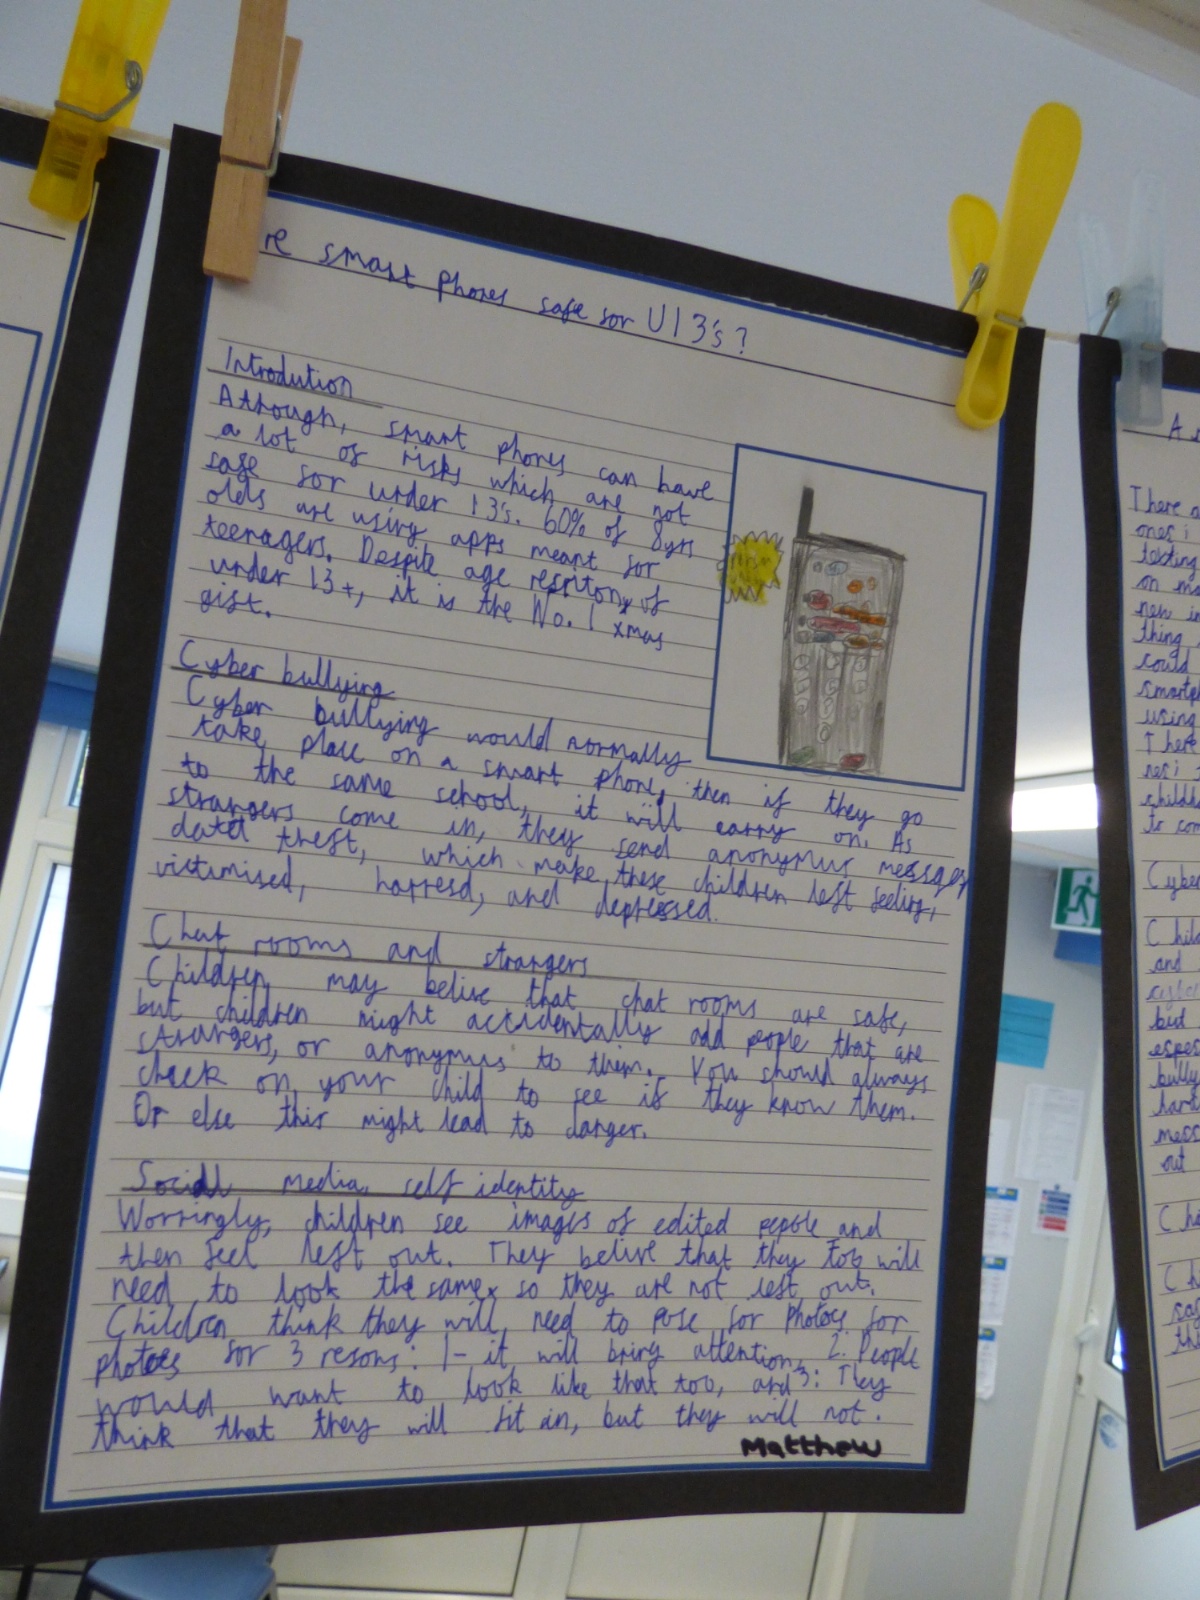 re smart phones safe for U13's?
Introdution
Athough, smart phones can have
a lot of risks which are not
safe for under 13's. 60% of 8yrs
olds are using apps meant for
teenagers. Despite age of
under 13+, it is the No. 1 xmas
gift.
Cyber bullying
Cyber bullying would normally
take place on a smart phone, then if they go
to the same school, it will carry on. As
strangers come in, they send anonymus messages,
data theft, which make these children left feeling,
victimised, harresd, and depressed.
Chat rooms and strangers
Children may belive that chat rooms are safe,
but children might accidentally add people that are
strangers, or anonymus to them. You should always
check on your child to see if they know them.
Or else this might lead to danger.
Social media, self identity
Worringly, children see images of edited pepole and
then feel left out. They belive that they too will
need to look the same, so they are not left out.
Children think they will need to pose for photos for
photoes for 3 resons: 1- it will bring attention, 2. People
would want to look like that too, and 3: They
think that they will fit in, but they will not.
Matthew
There a
ones i
texting
on mo
new in
thing
could
smartph
using
There
childh
to con
Cyber
Child
and
bed
espec
bully
mess
out
Ch